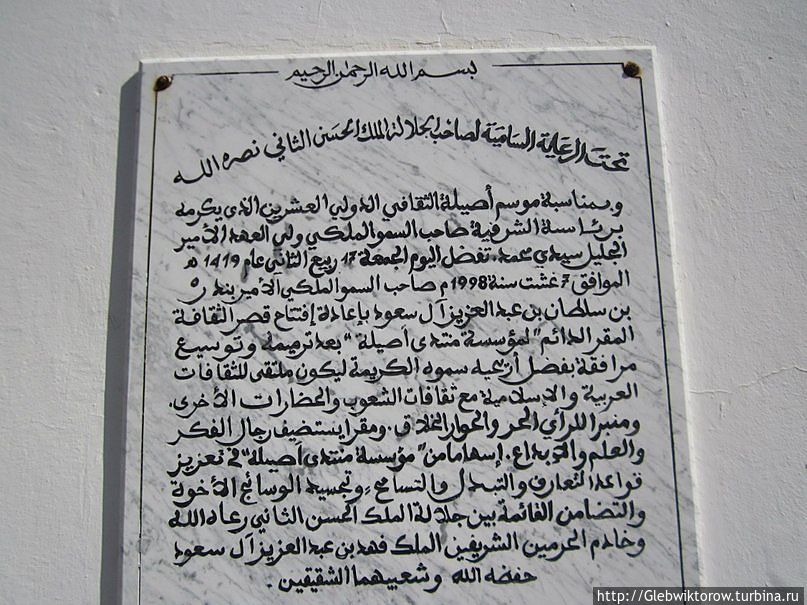 بسم الله الرحمن الرحيم
تحت الرعاية السامية لصاحب الجلالة الملك الحسن الثاني نصره الله
وبمناسبة موسم أصيلة الثقافي الدولي العشرين الذي يكرمه
برئاسة الشرفية صاحب السمو الملكي ولي العهد الأمير
الجليل سيدي محمد. تفضل اليوم الجمعة 17 ربيع الثاني عام 1419 هـ
الموافق 7 غشت سنة 1998 م صاحب السمو الملكي الأمير بندر
بن سلطان بن عبد العزيز آل سعود بإعادة إفتتاح قصر الثقافة
المقر الدائم "لمؤسسة منتدى أصيلة" بعد ترميمه وتوسيع
مرافقة بفضل أريحيه سموه الكريمة ليكون ملتقى للثقافات
العربية والإسلامية مع ثقافات الشعوب والحضارات الأخرى.
ومنبرا للرأي الحر والحوار الخلاق. ومقرا يستضيف رجال الفكر
والعلم والإبداع. إسهاما من "مؤسسة منتدى أصيلة" في تعزيز
قواعد التعارف والتبدل والتسامح، وتجسيد الوسائج الأخوة
والتضامن القائمة بين جلالة الملك الحسن الثاني رعاه الله
وخادم الحرمين الشريفين الملك فهد بن عبد العزيز آل سعود
حفضه الله وشعبيهما الشقيقين.
http://Glebwiktorow.turbina.ru